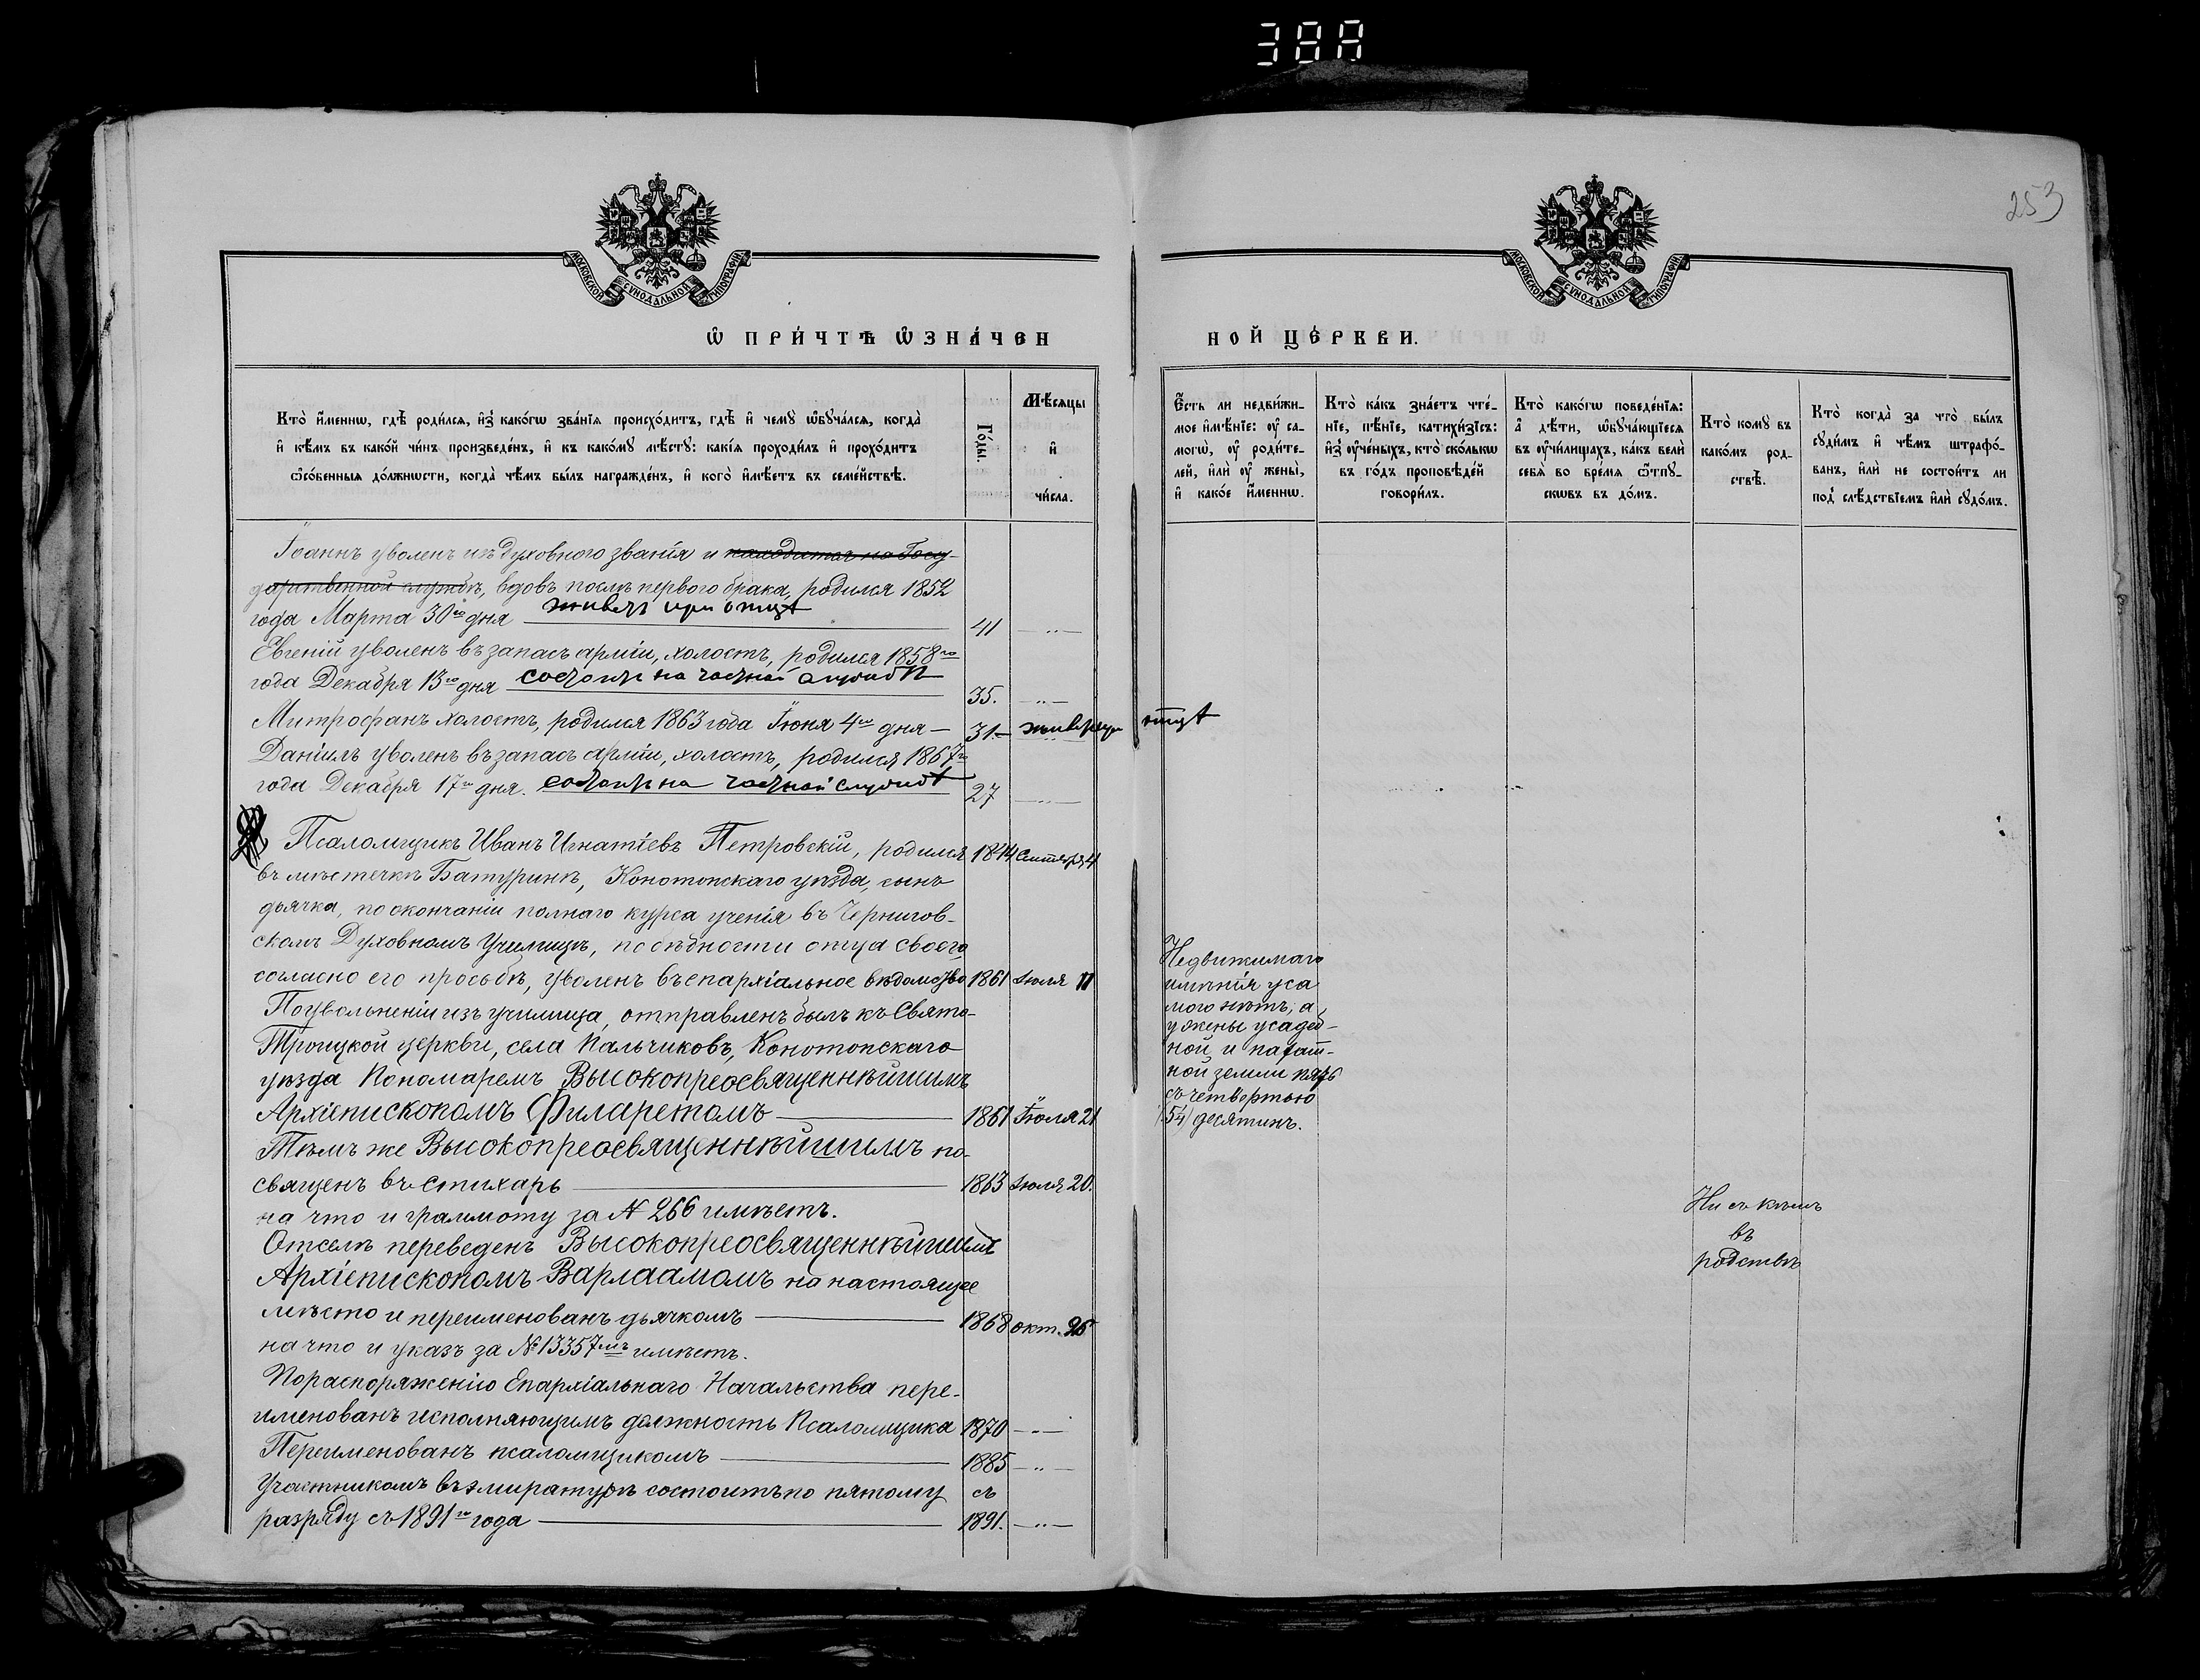 388
253
МОСКОВСКОЙ СУНОДАЛЬНОЙ ТИПОГРАФІИ
МОСКОВСКОЙ СУНОДАЛЬНОЙ ТИПОГРАФІИ
Ѡ ПРИ́ЧТѢ ѠЗНА́ЧЕН
НОЙ ЦЕ́РКВИ.
Кто̀ и҆́меннѡ, гдѣ̀ роди́лсѧ, и҆з̾ како́гѡ зва́нїѧ происхо́дитъ, гдѣ̀ и҆ чемꙋ̀ ѡ҆бꙋча́лсѧ, когда̀
и҆ кѣ́мъ въ како́й чи́нъ произведе́нъ, и҆ къ како́мꙋ мѣ́стꙋ: какі́ѧ проходи́лъ и҆ прохо́дитъ
ѻ҆со́бенныѧ до́лжнѡсти, когда̀ чѣ́мъ бы́лъ награжде́нъ, и҆ кого̀ и҆мѣ́етъ въ семе́йствѣ.
Го́ды.
Мѣ́сѧцы
и҆
чи́сла.
Е҆́сть ли недви́жи-
мое и҆мѣ́нїе: ᲂу҆ са-
могѡ̀, ᲂу҆ роди́те-
лей, и҆лѝ ᲂу҆ жены̀,
и҆ како́е и҆́меннѡ.
Кто̀ ка́къ зна́етъ чте́-
нїе, пѣ́нїе, катихи́зїсъ:
и҆з̾ ᲂу҆че́ныхъ, кто̀ ско́лькѡ
въ го́дъ проповѣ́дей
говори́лъ.
Кто̀ како́гѡ поведе́нїѧ:
а҆ дѣ́ти, ѡ҆бꙋча́ющїесѧ
въ ᲂу҆чи́лищахъ, ка́къ велѝ
себѧ̀ во вре́мѧ ѿпꙋ-
скѡвъ въ до́мъ.
Кто̀ комꙋ̀ въ
како́мъ род-
ствѣ̀.
Кто̀ когда̀ за что̀ бы́лъ
сꙋди́мъ и҆ чѣ́мъ штрафо́-
ванъ, и҆лѝ не состои́тъ ли
под̾ слѣ́дствїемъ и҆лѝ сꙋдо́мъ.
Іоаннъ уволенъ изъ духовного званія и находится на Госу-
дарственной службѣ, вдовъ послѣ первого брака, родился 1852
года Марта 30го дня живетъ при отцѣ 41 —„—
Евгеній уволенъ въ запасъ арміи, холостъ, родился 1858го
года Декабря 13го дня состоитъ на частной службѣ 35. —„—
Митрофанъ холостъ, родился 1863 года Іюня 4го дня — 31— живетъ при отцѣ
Даніилъ уволенъ въ запасъ арміи, холостъ, родился 1867го
года Декабря 17го дня. состоитъ на частной службѣ 27 —„—
Псаломщикъ Иванъ Игнатіевъ Петровскій, родился 1844 Сентября 4
въ мѣстечкѣ Батуринѣ, Конотопскаго уѣзда, сынъ
дьячка, по окончаніи полнаго курса ученія въ Чернигов-
скомъ Духовномъ Училищѣ, по бѣдности отца своего
согласно его просьбѣ, уволенъ въ епархіальное вѣдомство 1861 Іюля 11
По увольненіи изъ училища, отправленъ былъ къ Свято-
Троицкой церкви, села Пальчиковъ, Конотопскаго
уѣзда Пономаремъ Высокопреосвященнѣйшимъ
Архіепископомъ Филаретомъ 1861 Іюля 21
Тѣмъ же Высокопреосвященнѣйшимъ по-
священъ въ стихарь 1863 Іюля 20.
на что и грамоту за № 266 имѣетъ.
Отселѣ переведенъ Высокопреосвященнѣйшимъ
Архіепископомъ Варлаамомъ на настоящее
мѣсто и переименованъ дьячкомъ 1868 окт. 25
на что и указъ за № 13357мъ имѣетъ.
По распоряженію Епархіальнаго Начальства пере-
именованъ исполняющимъ должность Псаломщика 1870 —„—
Переименованъ псаломщикомъ 1885 —„—
Участникомъ въ эмиратурѣ состоитъ по пятому съ
разряду съ 1891го года 1891. —„—
Недвижимаго
имѣнія у са
мого нѣтъ, а
у жены усадеб-
ной и пахат-
ной земли пять
съ четвертью
десятинъ.
Ни съ кѣмъ
въ
родствѣ